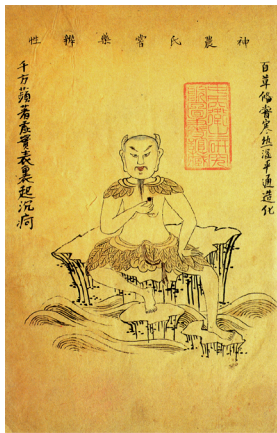 神農氏嘗藥辨性
百草俻嘗寒熱温平通造化
千方蘋著虛實表裏起沉疴